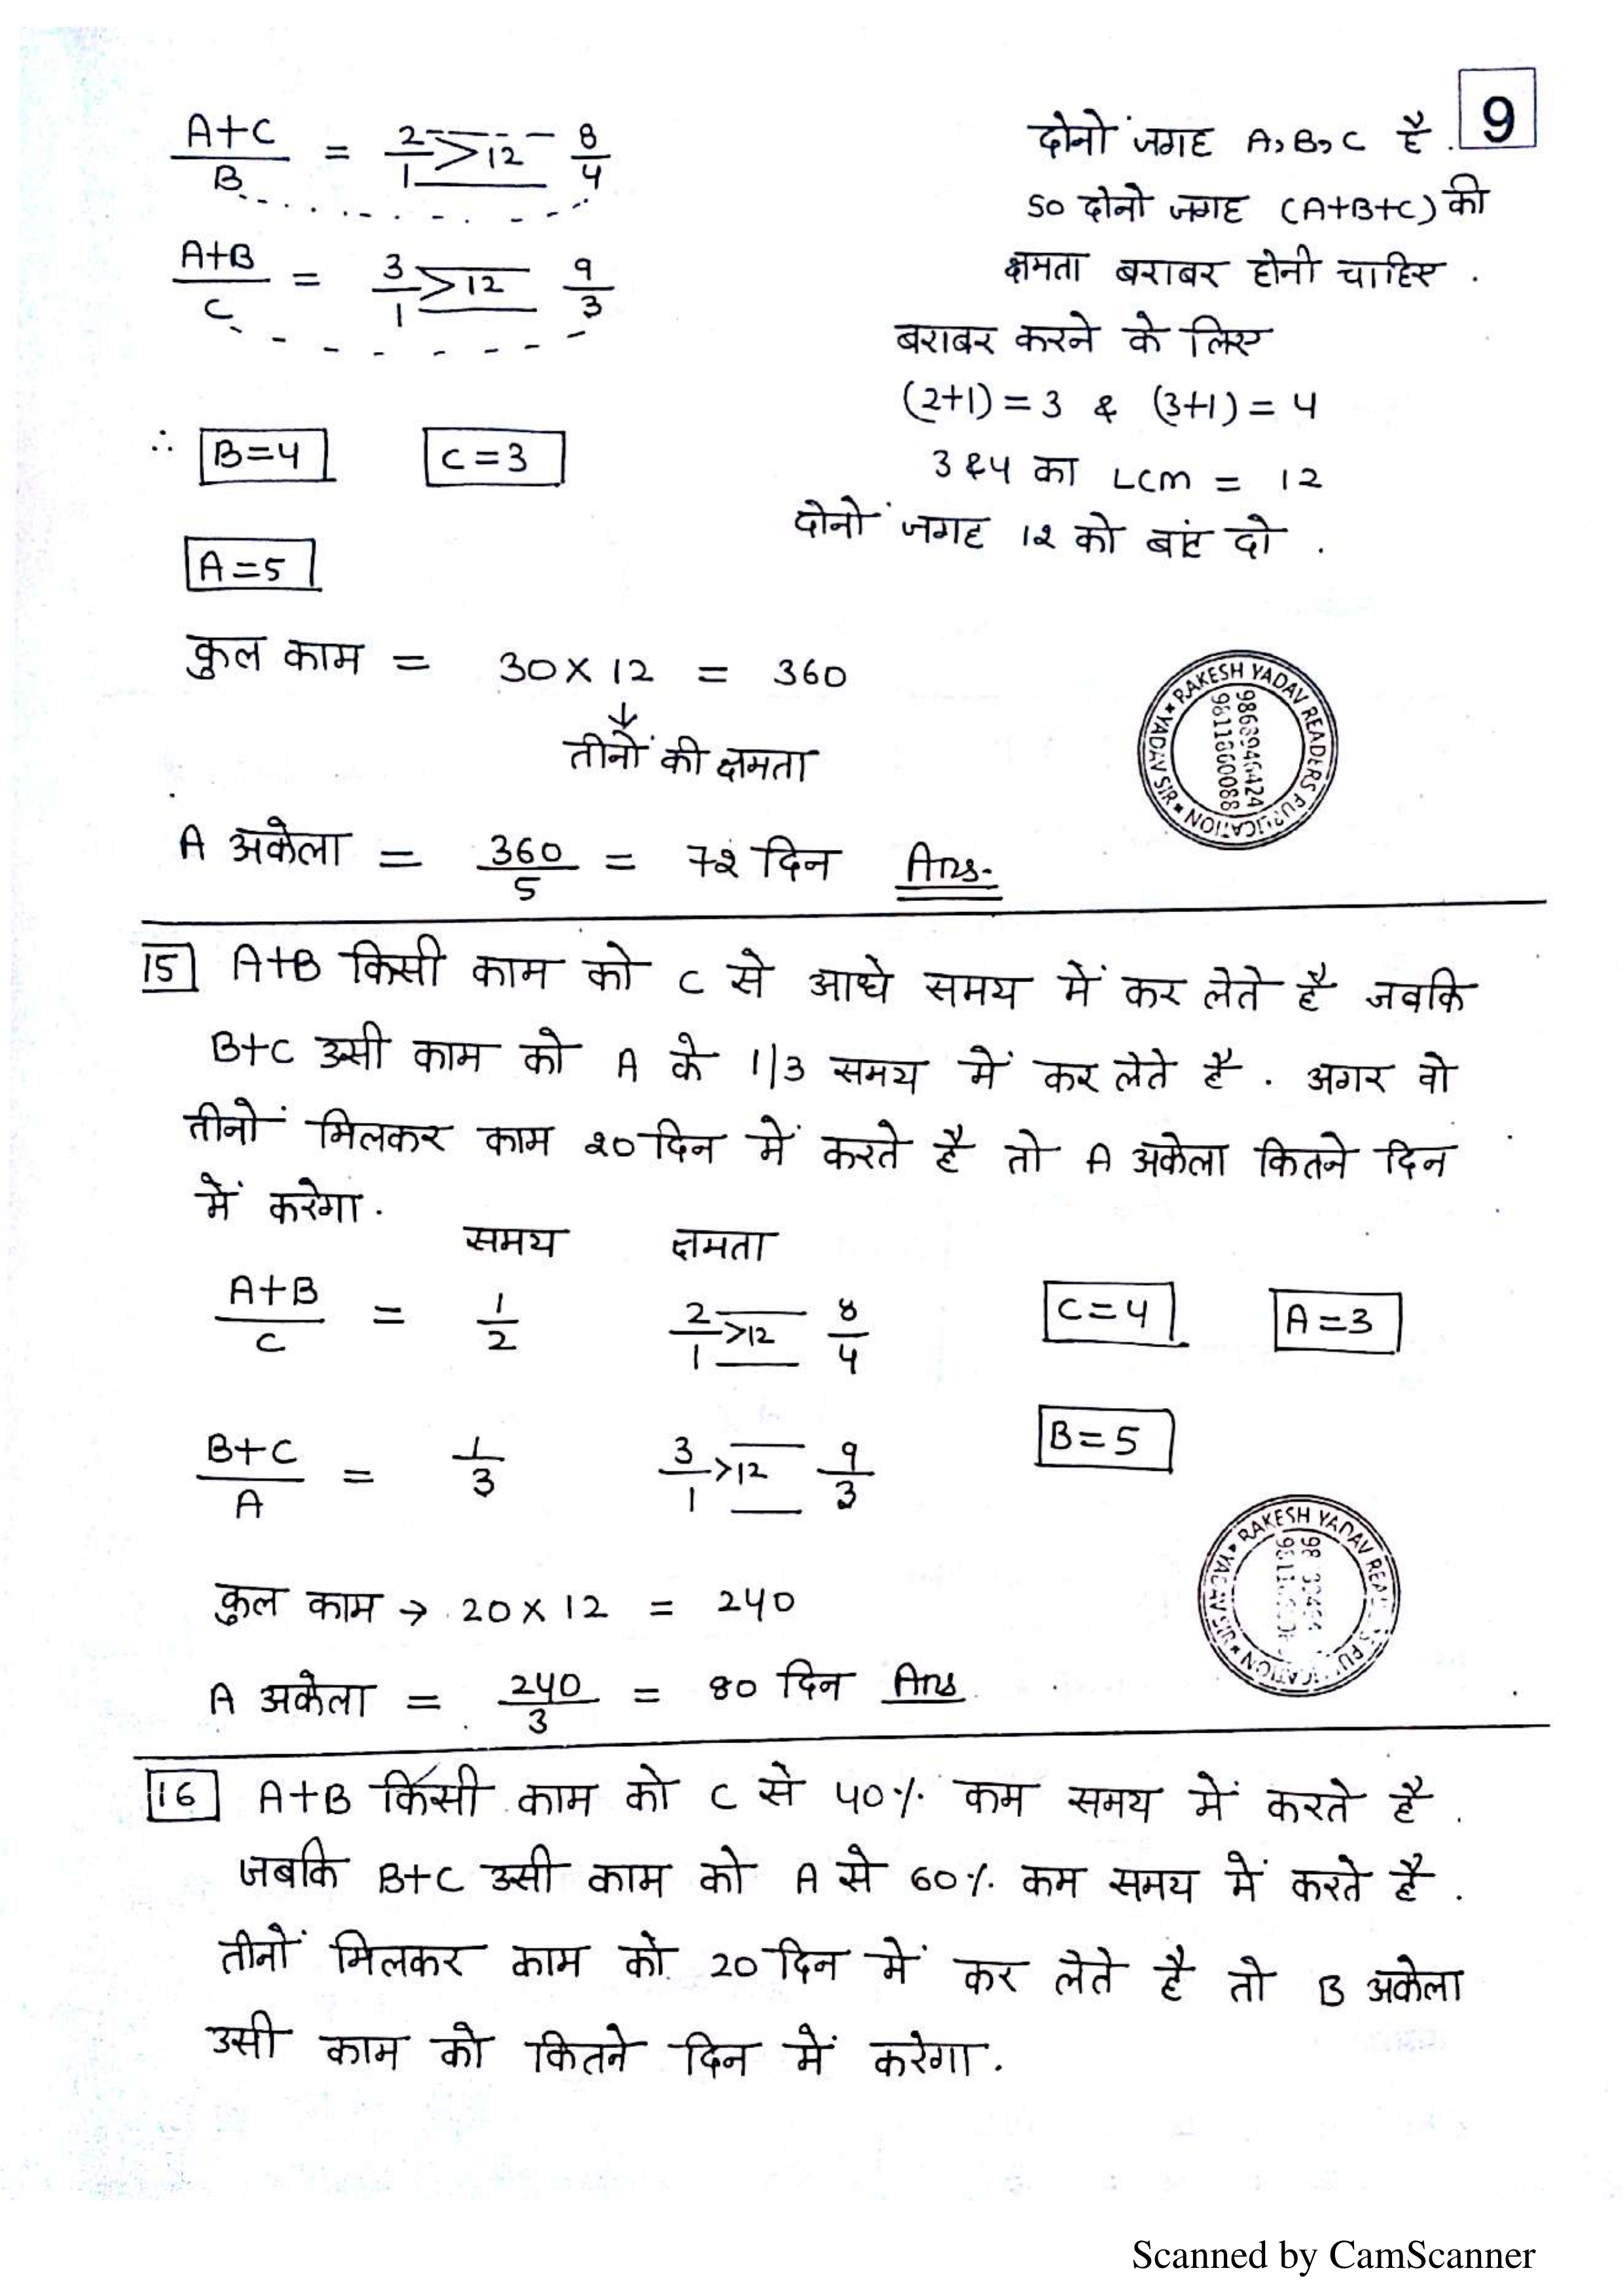 9
A+C/B = 2/1 > 12 8/4
दोनो जगह A, B, C है.
so दोनो जगह (A+B+C) की
A+B/C = 3/1 > 12 9/3
क्षमता बराबर होनी चाहिए .
बराबर करने के लिए
(2+1) = 3 & (3+1) = 4
∴ B=4 C=3
3 & 4 का LCM = 12
दोनों जगह 12 को बांट दो .
A=5
कुल काम = 30 × 12 = 360
↓
तीनों की क्षमता
RAKESH YADAV READERS PUBLICATION * YADAV SIR *
9868946424
9811860088
A अकेला = 360/5 = 72 दिन Ans.
15 A+B किसी काम को C से आधे समय में कर लेते है जबकि
B+C उसी काम को A के 1/3 समय में कर लेते है . अगर वो
तीनों मिलकर काम 20 दिन में करते है तो A अकेला कितने दिन
में करेगा .
समय क्षमता
A+B/C = 1/2 2/1 > 12 8/4 C=4 A=3
B+C/A = 1/3 3/1 > 12 9/3 B=5
RAKESH YADAV
कुल काम → 20 × 12 = 240
A अकेला = 240/3 = 80 दिन Ans
16 A+B किसी काम को C से 40% कम समय में करते है .
जबकि B+C उसी काम को A से 60% कम समय में करते है .
तीनों मिलकर काम को 20 दिन में कर लेते है तो B अकेला
उसी काम को कितने दिन में करेगा .
Scanned by CamScanner